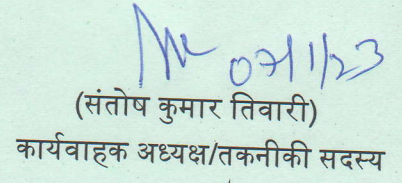 07/1/23
(संतोष कुमार तिवारी)
कार्यवाहक अध्यक्ष/तकनीकी सदस्य